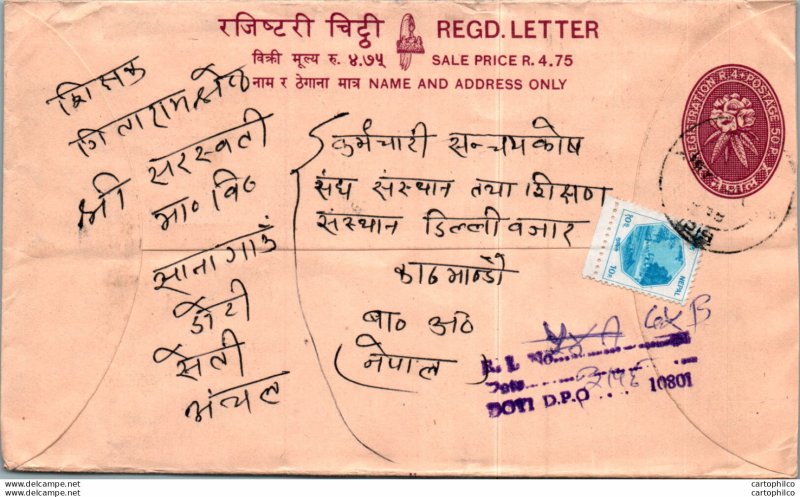 रजिष्टरी चिट्ठी REGD. LETTER
विक्री मूल्य रु. ४.७५ SALE PRICE R. 4.75
नाम र ठेगाना मात्र NAME AND ADDRESS ONLY
REGISTRATION R. 4 + POSTAGE 50 P.
शिक्षक
श्री सरस्वती
मा० वि०
सानागाउँ
डोटी
सेती
अंचल
कर्मचारी सन्चयकोष
संघ संस्थान तथा शिक्षण
संस्थान डिल्लीबजार
काठमाण्डौ
बा० अं०
(नेपाल)
NEPAL
10P.
R. L. No.
Date
DOTI D.P.O 10801
cartophilco
cartophilco